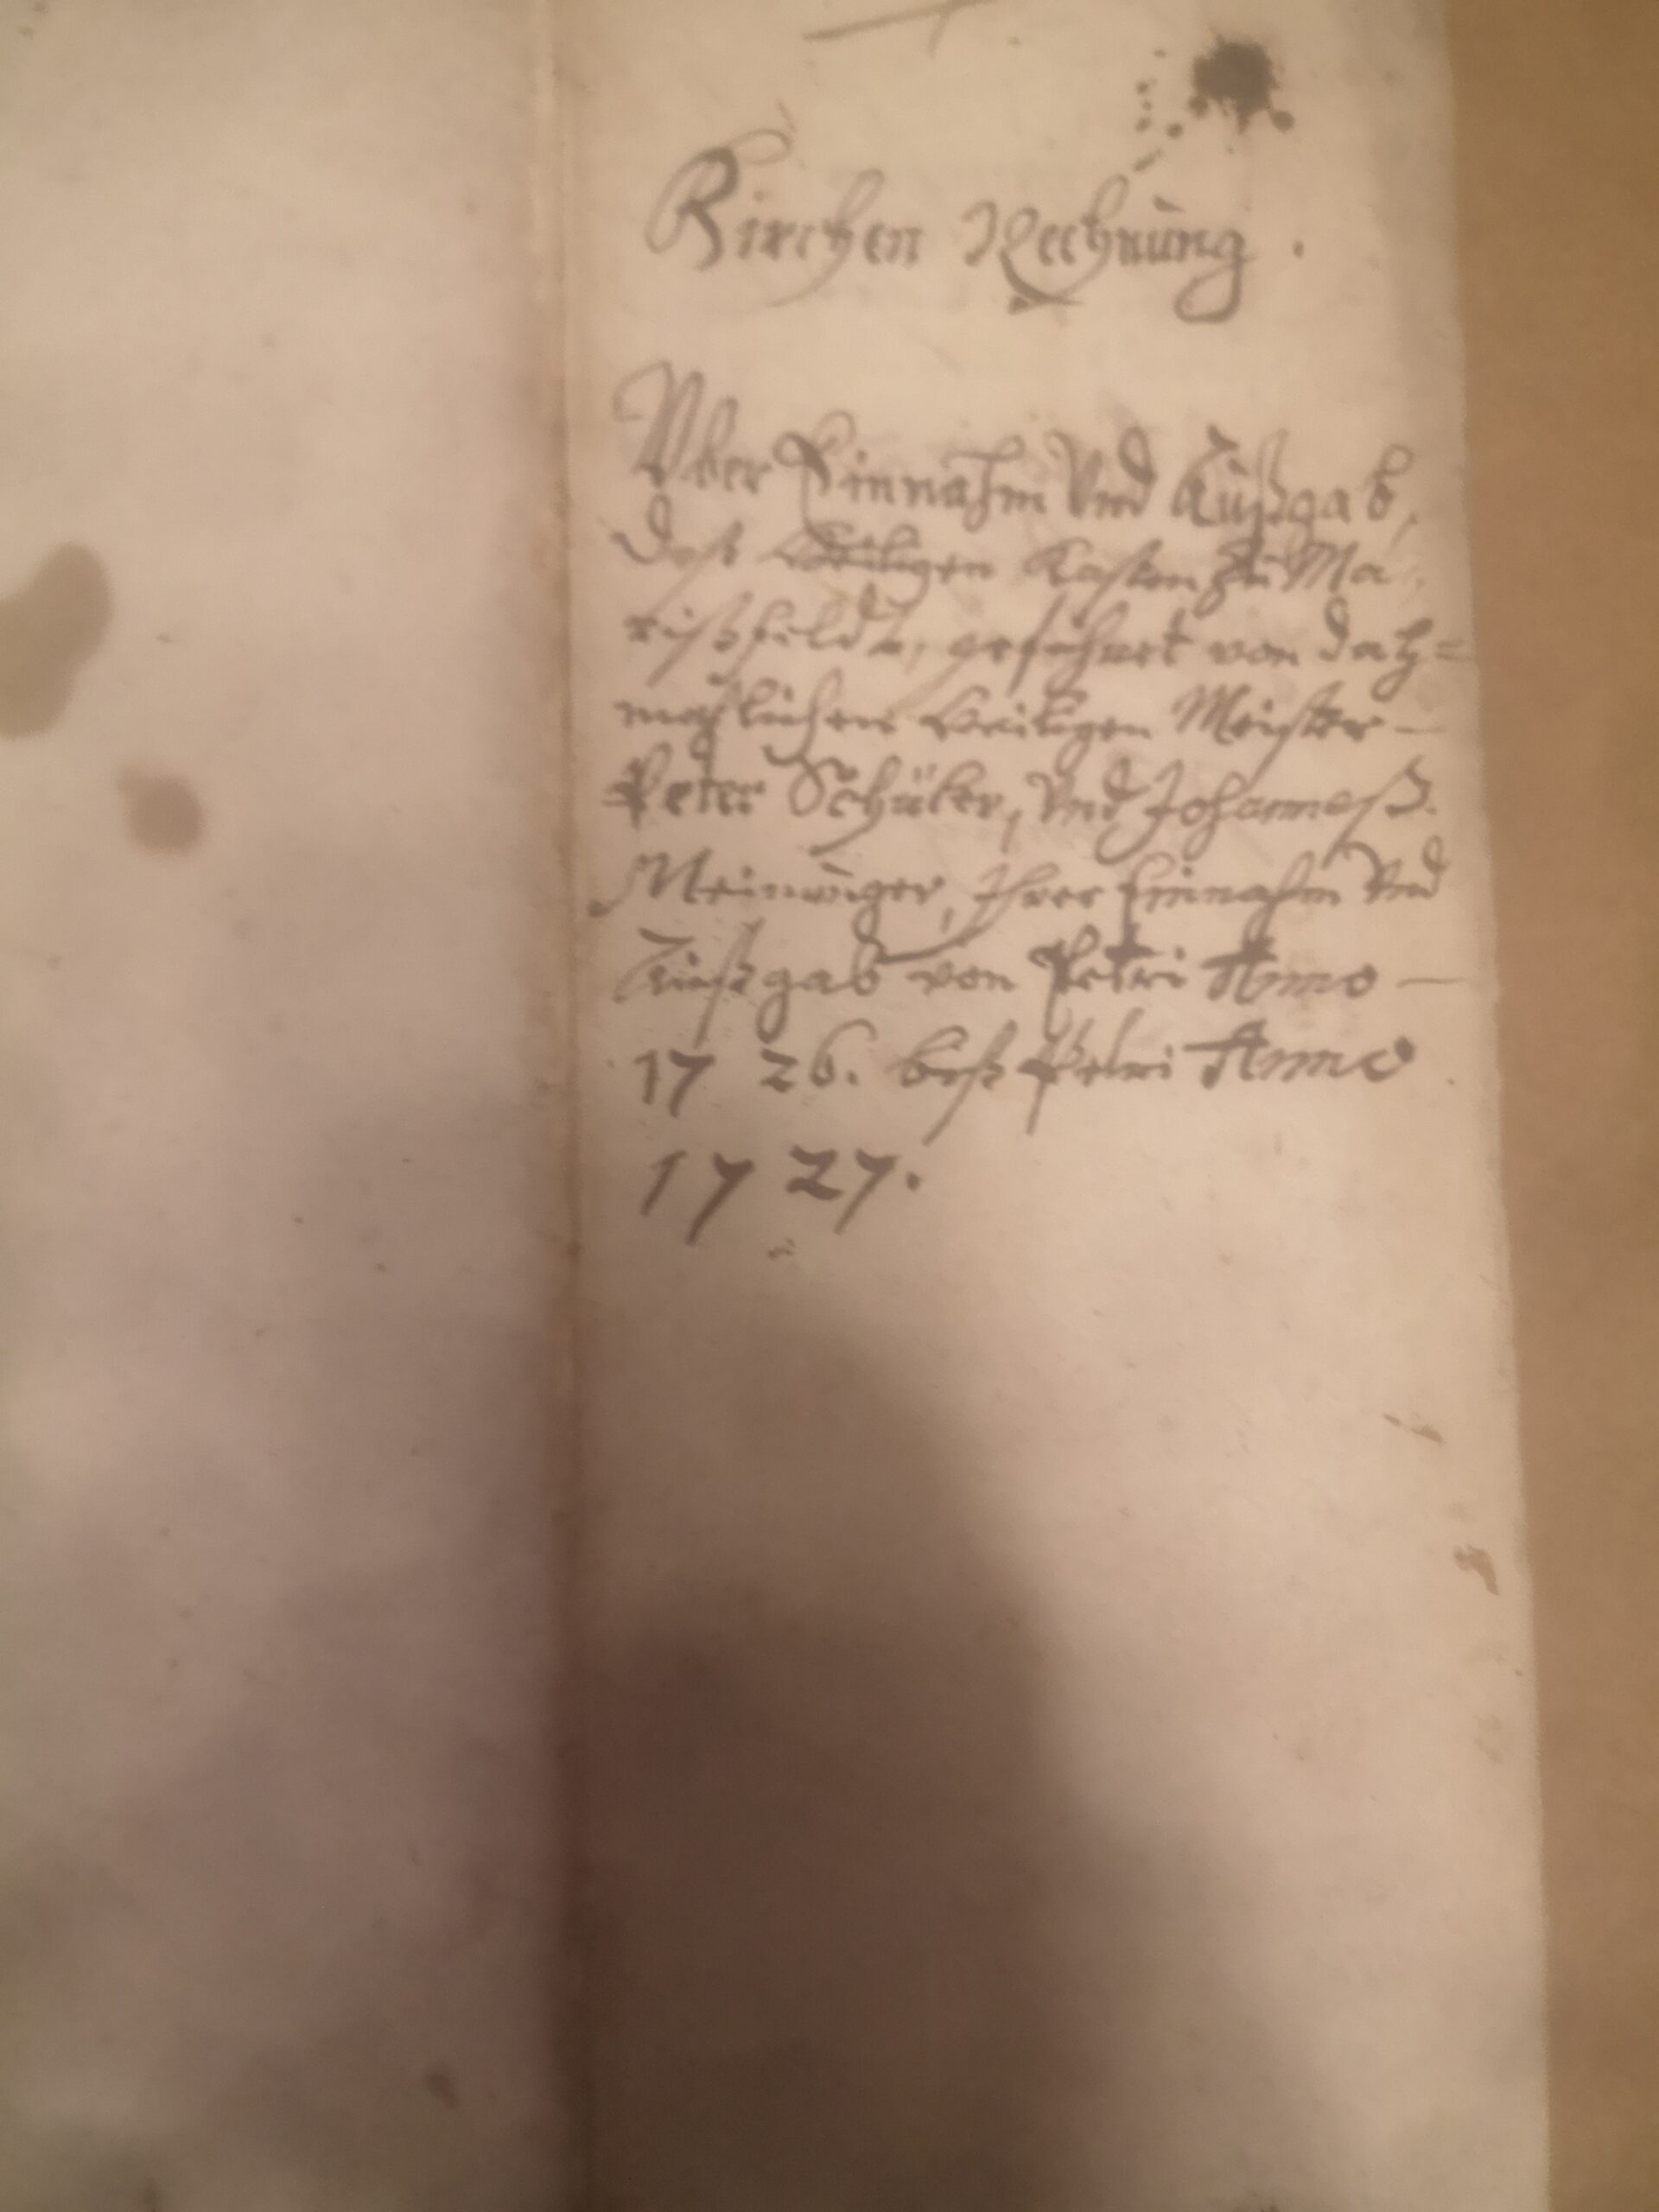 Kirchen Rechnung.
Uber Einnahm Und Außgab,
Deß Heiligen Kasten zu Ma
rißfeldt, geführet von datz=
mahlichen Heiligen Meister –
Peter Schüler, Und Johanneß
Meininger, Ihrer Einnahm Und
Außgab von Petri Anno –
1726. biß Petri Anno
1727.